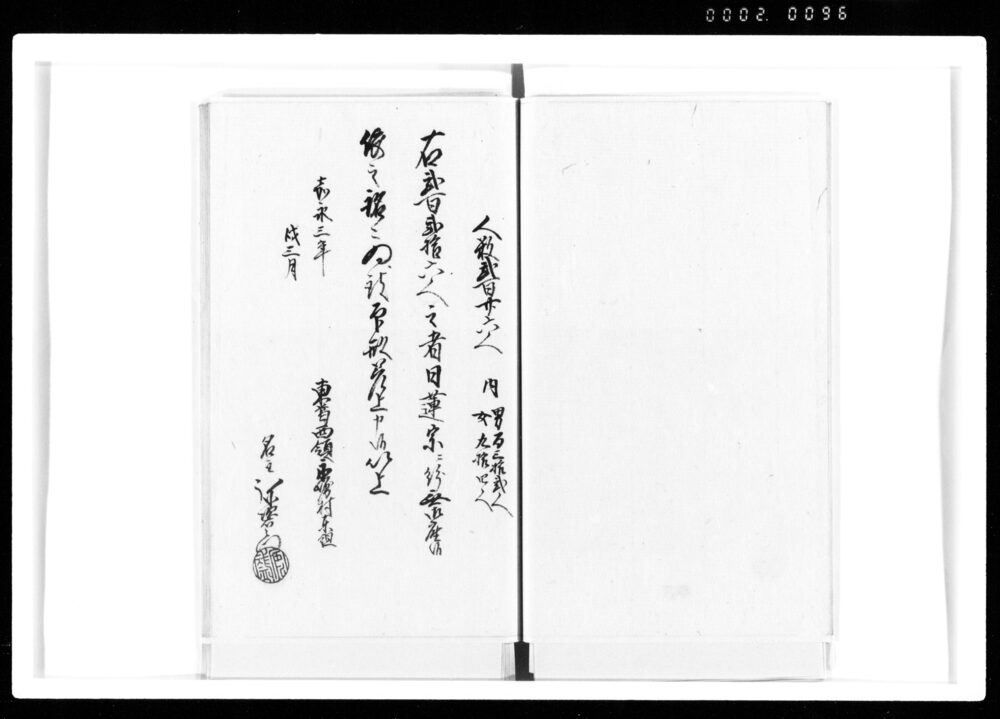 0002. 0096
人数弐百廿六人 内 男百三拾弐人
女九拾四人
右弐百弐拾六人之者日蓮宗ニ紛無御座候
依之銘々為致印形差上申候以上
嘉永三年
戌三月
東 西領 村
名主